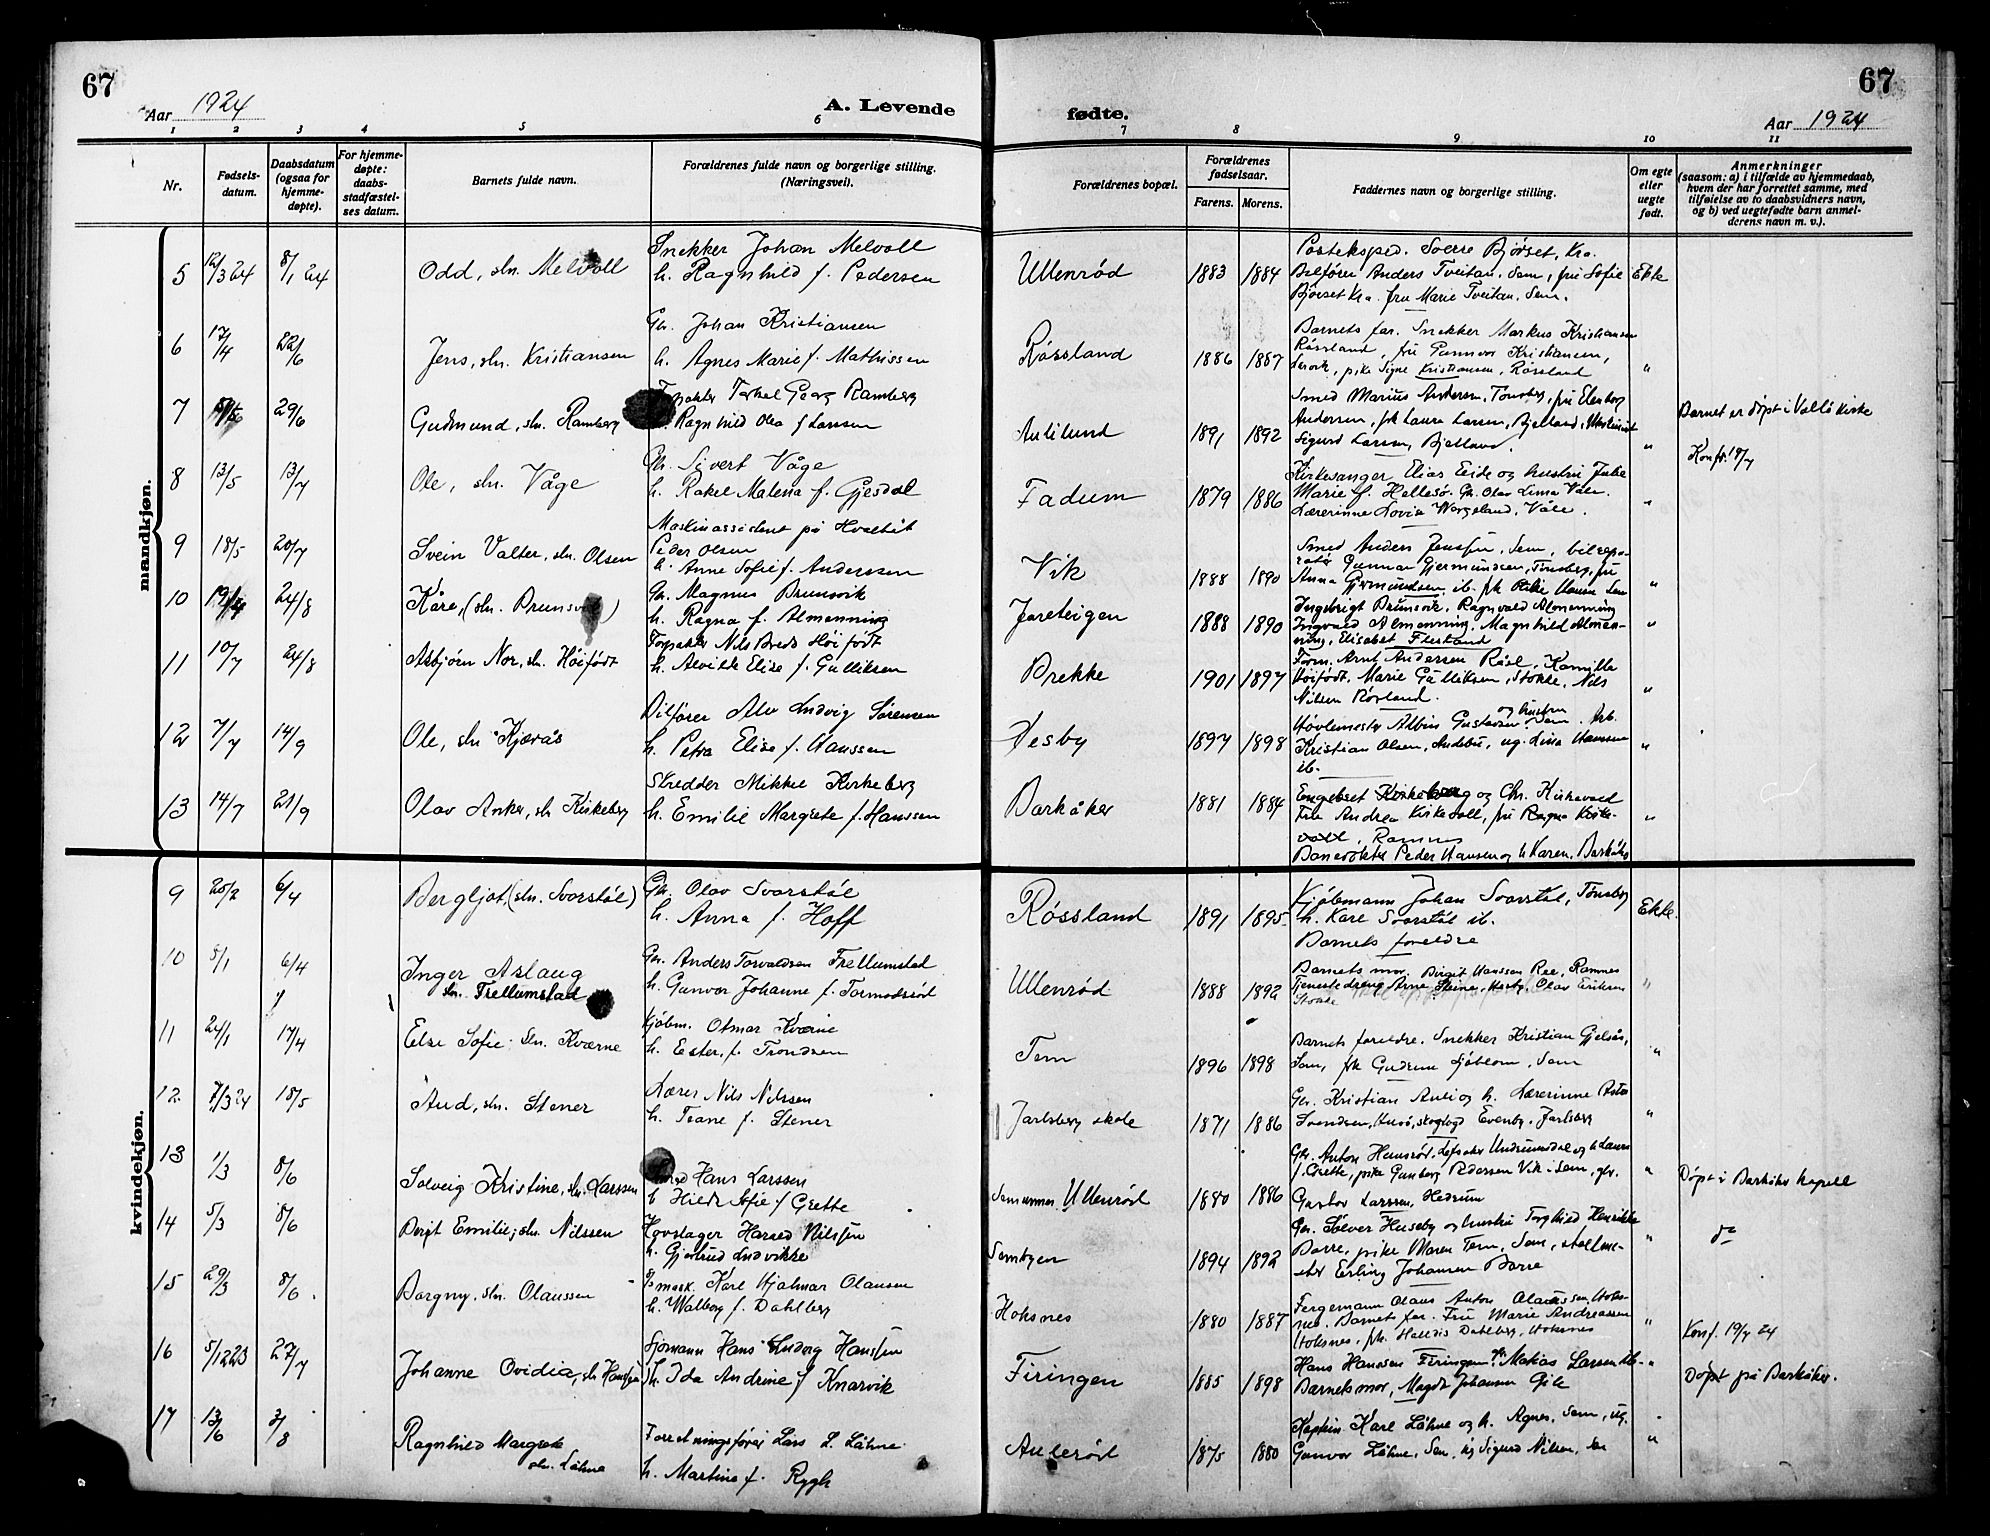 67
Aar 1924
A. Levende
fødte.
67
Aar 1924
1 2 3 4 5 6 7 8 9 10 11
Nr.
Fødsels-
datum.
Daabsdatum
(ogsaa for
hjemme-
døpte).
For hjemme-
døpte:
daabs-
stadfæstel-
ses datum.
Barnets fulde navn.
Forældrenes fulde navn og borgerlige stilling.
(Næringsvei).
Forældrenes bopæl.
Forældrenes
fødselsaar.
Farens. Morens.
Faddernes navn og borgerlige stilling.
Om egte
eller
uegte
født.
Anmerkninger
(saasom: a) i tilfælde av hjemmedaab,
hvem der har forrettet samme, med
tilføielse av to daabsvidners navn,
og b) ved uegtefødte barn anmel-
derens navn m. v.).
mandkjøn.
5 12/3 24 8/1 24 Odd, sln. Melvoll
Snekker Johan Melvoll
h. Ragnhild f. Pedersen
Ullenrød 1883 1884
Posteksped. Sverre Bjørset, Kra.
Bilfører Anders Tveitan, Sem, fru Sofie
Bjørset Kra. fru Marie Tveitan, Sem.
Ekte
6 17/4 22/6 Jens, sln. Kristiansen
Gr. Johan Kristiansen
h. Agnes Marie f. Mathissen
Røssland 1886 1887
Barnets far. Snekker Markus Kristiansen
Røssland, fru Gunvor Kristiansen,
pike Signe Kristiansen, Røssland
"
7 29/6 Gudmund, sln. Ramberg
Torkel Georg Ramberg
Ragnhild Olea f Larsen
Aulilund 1891 1892
Smed Marius Andersen, Tønsberg, fru Elenborg
Andersen, frk Laura Larsen, Bjelland,
Sigurd Larsen, Bjelland.
"
Barnet er døpt i Vallø kirke
8 13/5 13/7 Ole, sln. Våge
Gr. Sivert Våge
h. Rakel Malena f. Gjesdal
Fadum 1879 1886
Kirkesanger Elias Eide og hustru Julie
Marie f. Hellesø. Gr. Olav Våle.
Lærerinne Lovise Våle.
"
Konf. 19/7
9 18/5 20/7 Svein Valter, sln. Olsen
Maskinassistent på Hvalbåt
Peder Olsen
h. Anne Sofie f. Anderssen
Vik 1888 1890
Smed Anders Jenssen, Sem, bilrepa-
ratør Gunnar Gjermundsen, Tønsberg, fru
Anna Gjermundsen, ib. frk Hansen Sem
"
10 24/8 Kåre, (sln. Brunsvik)
Gr. Magnus Brunsvik
h. Ragna f. Almenning
Jareteigen 1888 1890
Ingebrigt Brunsvik, Ragnvald Almenning
Ingvald Almenning, Magnhild Almen-
ning, Elisabet
"
11 10/7 24/8 Asbjørn Nor, sln. Høifødt
Nils Høifødt
h. Alvilde Elise f. Gulliksen
Brekke 1901 1897
Form. Arnt Andersen Kamilla
Høifødt, Marie Gulliksen, Stokke, Nils
Nilsen
"
12 7/7 14/9 Ole, sln Kjærås
Bilfører Alv Ludvig Sørensen
h. Petra Elise f. Hanssen
Vesby 1897 1898
Albin Gustavsen og hustru Sem. Arb.
Kristian Olsen, Andebu, ug. Lina Hanssen
ib.
"
13 14/7 21/9 Olav Anker, sln Kirkeberg
Skredder Mikkel Kirkeberg
h. Emilie Margrete f. Hanssen
Barkåker 1881 1884
Engebret og Chr. Kirkevold
Andrea Kirkevoll, fru Ragna Kirke-
voll, Ramnes
Banevokter Peder Hansen og h Karen, Barkåker
"
kvindekjøn.
9 20/2 6/4 Bergljot, (sln. Svorstøl)
Gr. Olav Svarstøl
h. Anna f. Hoff
Røssland 1891 1895
Kjøbmann Johan Svarstøl, Tønsberg
h. Kare Svarstøl ib.
Barnets foreldre
Ekte.
10 5/1 6/4 Inger Aslaug
sln. Frellumstad
Gr. Anders Torvaldsen Frellumstad
h. Gunvor Johanne f. Tormodsrød
Ullenrød 1888 1892
Barnets mor. Birgit Hanssen Ree, Ramnes
Tjenestedreng Arne Steines, Olav Eriksen
Stokke
"
11 24/1 17/4 Else Sofie sln. Kværne
Kjøbm. Otmar Kværne
h. Ester, f. Trondsen
Tem 1896 1898
Barnets foreldre. Snekker Kristian
Sem, frk Gudrun Sjøblom, Sem
"
12. 7/3 24 18/5 Aud, sln. Stener
Lærer Nils Nilssen
h. Teane f. Stener
Jarlsberg skole 1871 1886
Gr. Kristian Auli og h. Lærerinne Asta
Svendsen, Husø, skogfogd Evenby, Jarlsberg
"
13 1/3 8/6 Solveig Kristine, sln. Larssen
Hans Larssen
h Hilda Sofie f Grette
Ullenrød 1880 1886
Gr. Anton Undrumsdal og h Laura
f. Grette, pike Gunborg Pedersen Vik i Sem, gr.
Gustav Larssen, Hedrum
"
Døpt i Barkåker kapell
14 5/3 8/6 Berit Emilie, sln. Nilssen
Hovslager Harald Nilssen
h. Gjertrud Ludvikke
Sembyen 1894 1892
Gr. Sølver Huseby og hustru Torghild Henrikke
Borre, pike Maren Tem, Sem,
Erling Johansen Borre
"
do
15 29/3 8/6 Borgny, sln. Olaussen
mask. Karl Hjalmar Olausen
h. Valborg f. Dahlberg
Holsnes 1880 1887
Fergemann Olaus Anton Olaussen,
Barnets far. Fru Marie Andreassen
frk. Halldis Dahlberg,
"
Konf. 19/7 24
16 5/12 23 27/7 Johanne Ovidia, sln Hanssen
Sjømann Hans Ludvig Hanssen
h. Ida Andrine f Knarvik
Firingen 1885 1898
Hans Hanssen Firingen, Matias Larsen ib.
Barnets mor, Magda Johansen Gile
"
Døpt på Barkåker.
17 13/6 3/8 Ragnhild Margrete
sln. Løhne
Forretningsfører Lars L. Løhne
h. Martine f. Rygh
Aulerød 1875 1880
Kaptein Karl Løhne og h. Agnes, Sem, ug.
Gunvor Løhne, Sem, ug Sigurd Nilsen, Sem
"